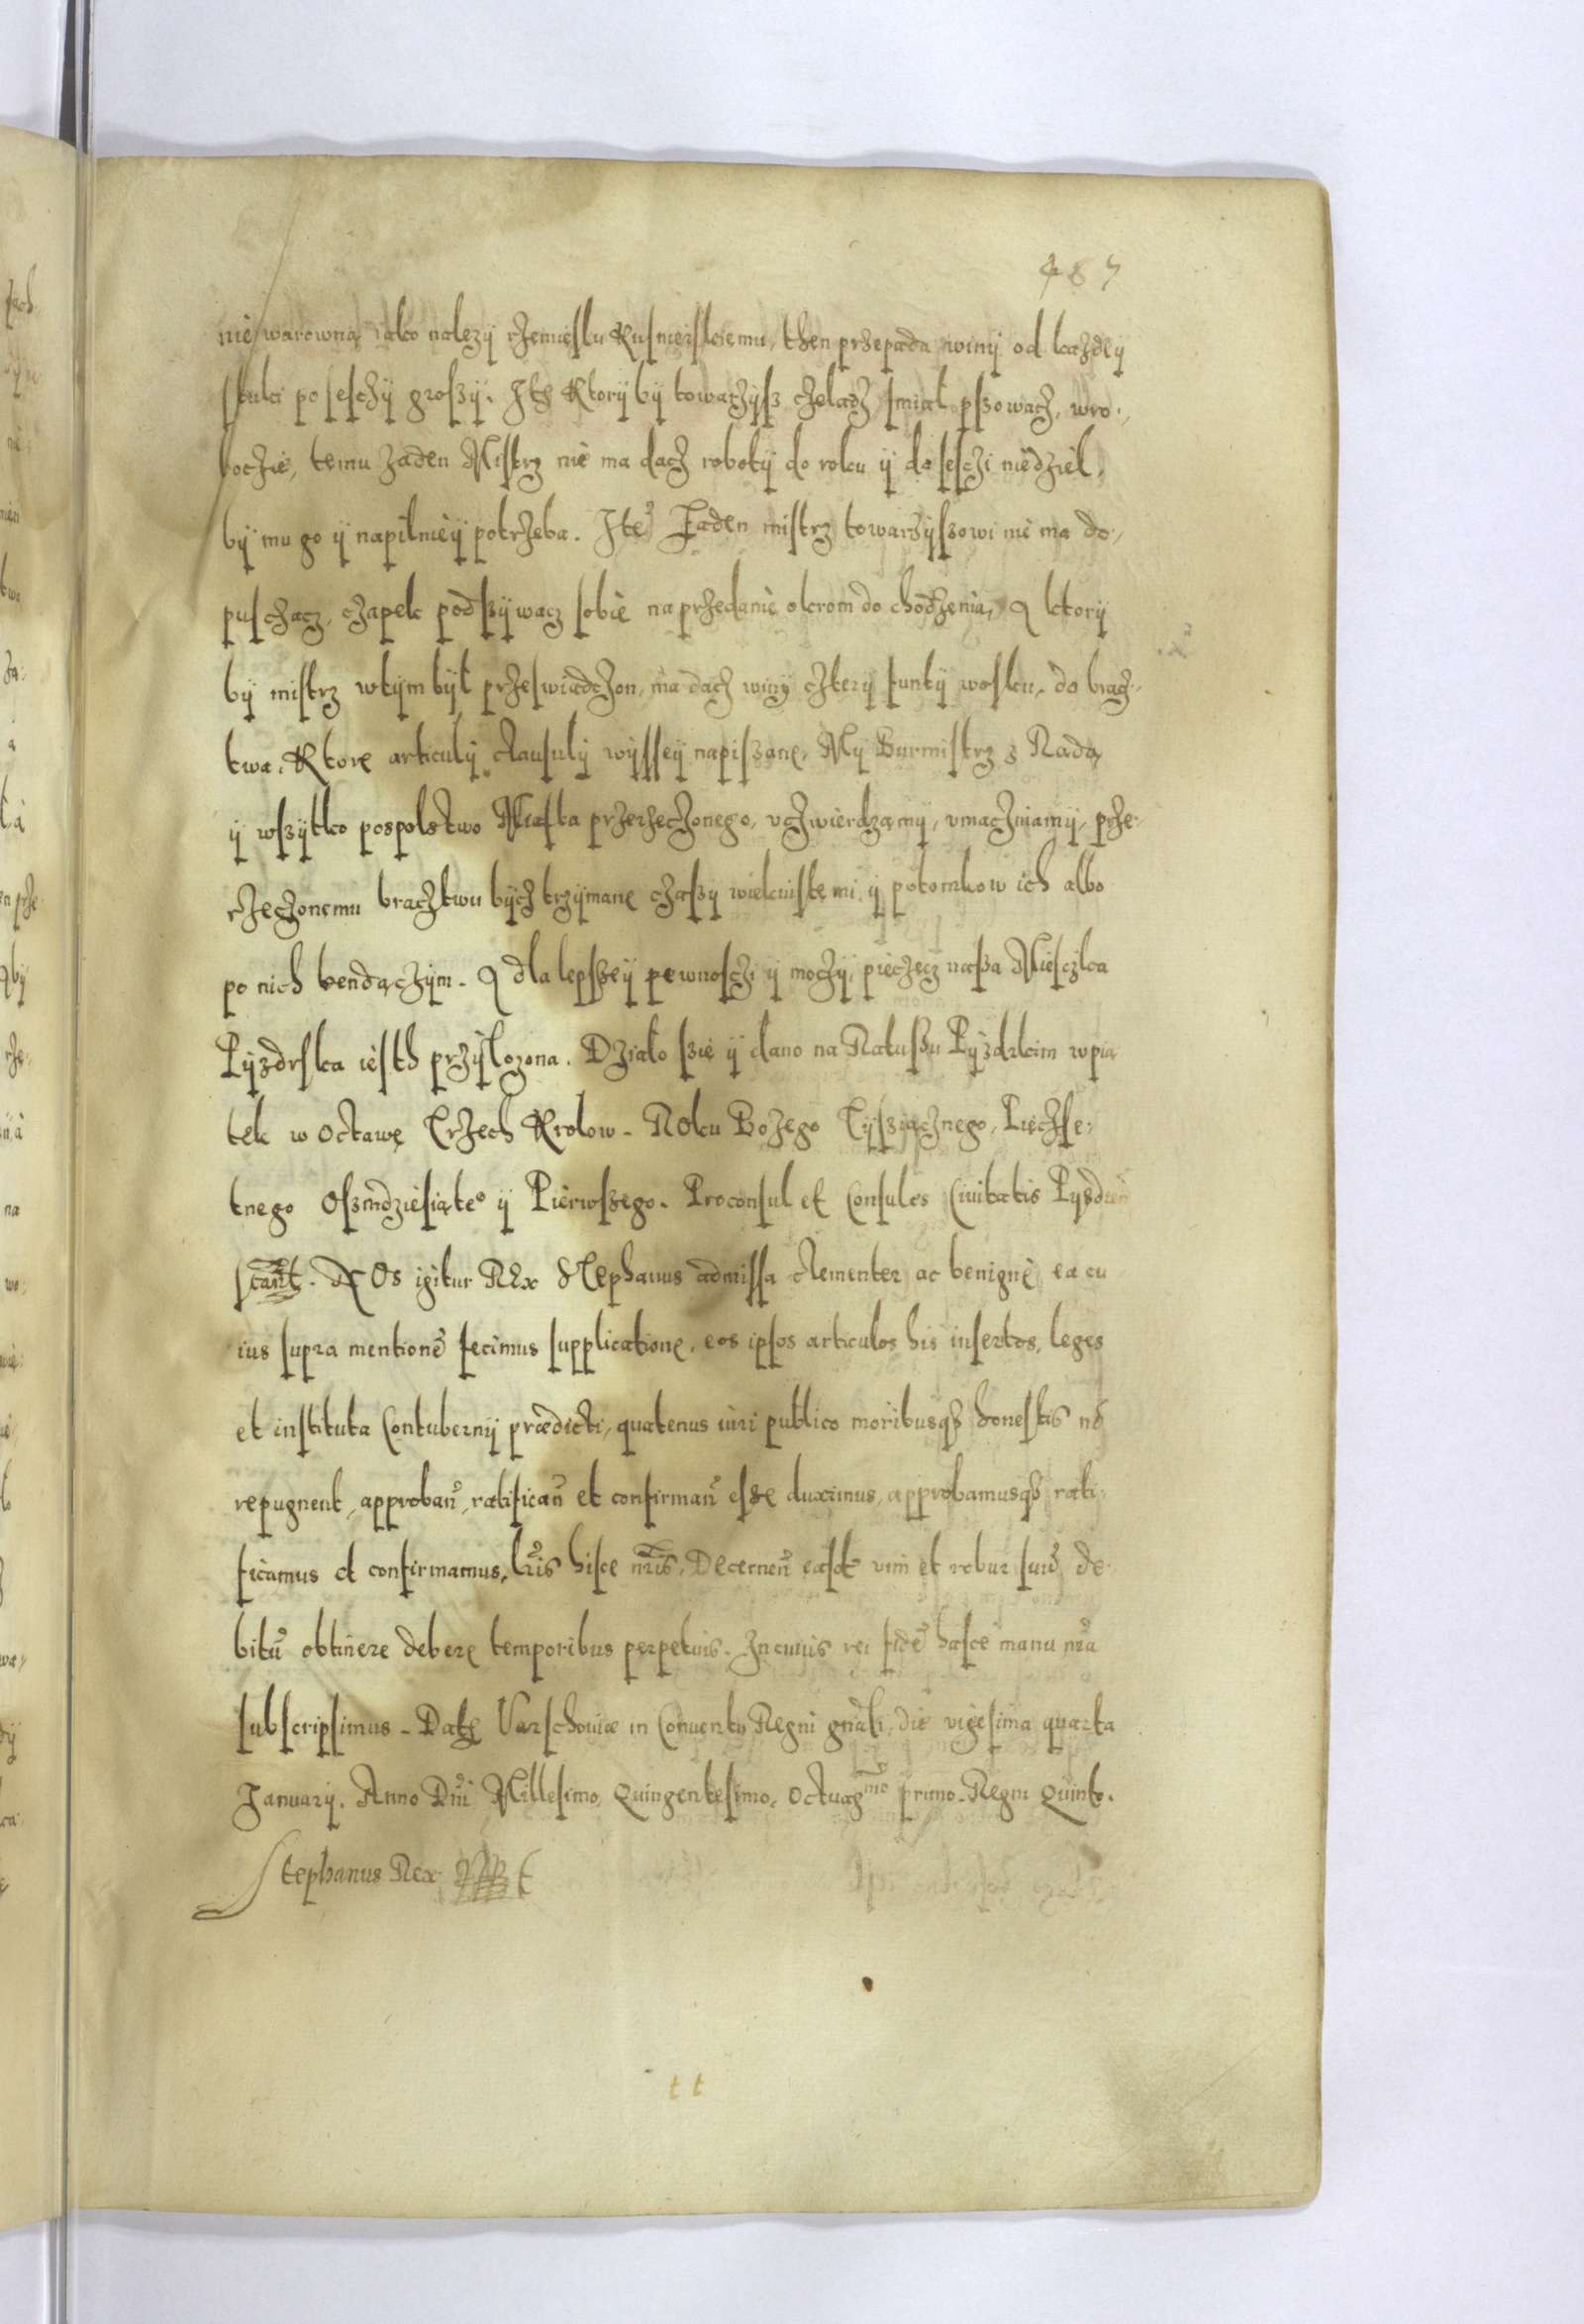 487
nie warowną iako nalezÿ rzemiesłu Kusnierskiemu, then przepada winÿ od każdeÿ
stuki po sesczÿ grossÿ. Itē Ktorÿ bÿ towarzÿsz czeladz smiał psowacz, wro-
boczie, temu żaden Mistrz nie ma dacz robotÿ do roku ÿ do sesczi niedziel,
bÿ mu go ÿ napilnieÿ potrzeba. Itē Żaden mistrz towarzÿszowi nie ma do-
pusczacz, czapek podszÿwacz sobie na przedanie okrom do chodzenia, A ktorÿ
bÿ mistrz wtÿm bÿł przeswiadczon, ma dacz winÿ cztery funtÿ wosku, do bracz-
twa. Ktore articulÿ clausulÿ wÿsseÿ napiszane, Mÿ Burmistrz z Radą
ÿ wszÿtko pospolstwo Miasta przerzeczonego, vczwierdzamÿ, vmaczniamÿ, prze-
rzeczonemu braczktwu bÿcz trzÿmane czassÿ wiekuistemi, ÿ potomkow ich albo
po nich bendączÿm. A dla lepszeÿ pewnosczi ÿ moczÿ, pieczęcz nassa Miesczka
Pÿzdrska iesth przÿłozona. Działo szie ÿ dano na Ratuszu Pÿzdrkim w pią
tek w Octawę Trzech Krolow. Roku Bożego Tÿsziącznego, Pięczse-
tnego Oszmdziesiąte° ÿ Pierwszego. Proconsul et Consules Ciuitatis Pyzdreñ
Nos igitur Rex Stephanus admissa clementer ac benigne ea cu
ius supra mentionē fecimus supplicatione, eos ipsos articulos his insertos, leges
et instituta Contubernij prædicti, quatenus iuri publico moribusqȝ honestis nō
repugnent, approbañ, ratificañ et confirmañ esse duximus, approbamusqȝ rati-
ficamus et confirmamus, lr̃is hisce nr̃is, Decerneñ easdē vim et robur suū de-
bitū obtinere debere temporibus perpetuis. In cuius rei fidē hasce manu nr̃a
subscripsimus. Datę Varschouiæ in Conuentu Regni gñali, die vigesima quarta
Januarij. Anno Dñi Millesimo, Quingentesimo, Octuag^mo primo. Regni Quinto.
Stephanus Rex
t t